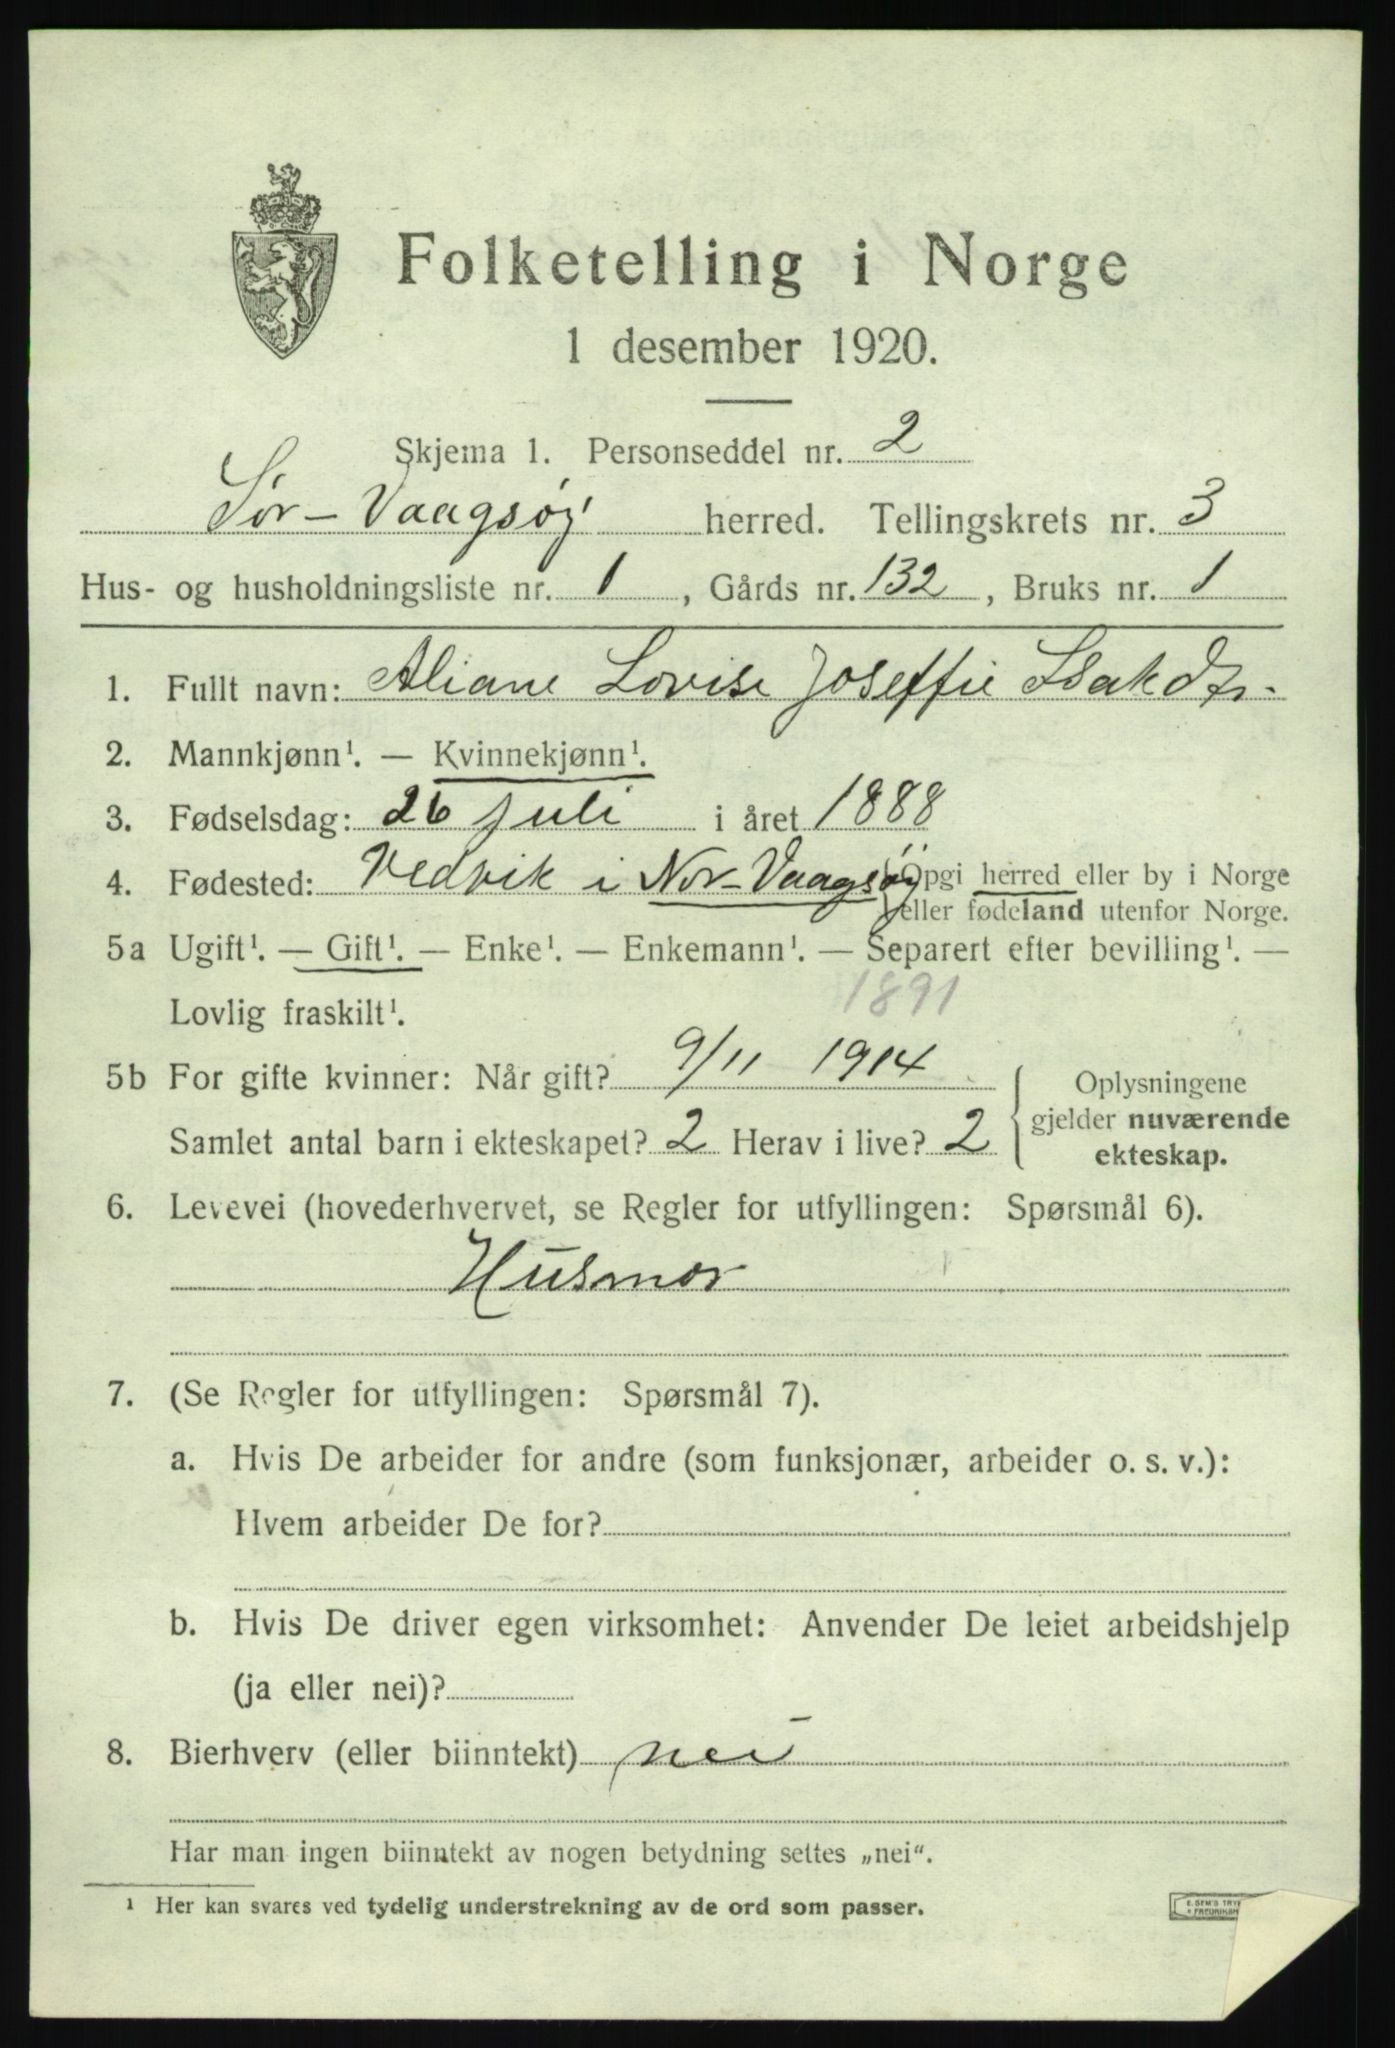 Folketelling i Norge
1 desember 1920.
Skjema 1. Personseddel nr. 2
Sør-Vaagsøy herred. Tellingskrets nr. 3
Hus- og husholdningsliste nr. 1, Gårds nr. 132, Bruks nr. 1
1. Fullt navn: Aliane Lovise Joseffie Isakdtr.
2. Mannkjønn¹. — Kvinnekjønn¹.
3. Fødselsdag: 26 juli i året 1888
4. Fødested: Vedvik i Nor-Vaagsøy (Opgi herred eller by i Norge
eller fødeland utenfor Norge.
5a Ugift¹. — Gift¹. — Enke¹. — Enkemann¹. — Separert efter bevilling¹. —
Lovlig fraskilt¹. 1891
5b For gifte kvinner: Når gift? 9/11 1914
Samlet antal barn i ekteskapet? 2 Herav i live? 2
Oplysningene
gjelder nuværende
ekteskap.
6. Levevei (hovederhvervet, se Regler for utfyllingen: Spørsmål 6).
Husmor
7. (Se Regler for utfyllingen: Spørsmål 7).
a. Hvis De arbeider for andre (som funksjonær, arbeider o. s. v.):
Hvem arbeider De for?
b. Hvis De driver egen virksomhet: Anvender De leiet arbeidshjelp
(ja eller nei)?
8. Bierhverv (eller biinntekt) nei
Har man ingen biinntekt av nogen betydning settes „nei“.
¹ Her kan svares ved tydelig understrekning av de ord som passer.